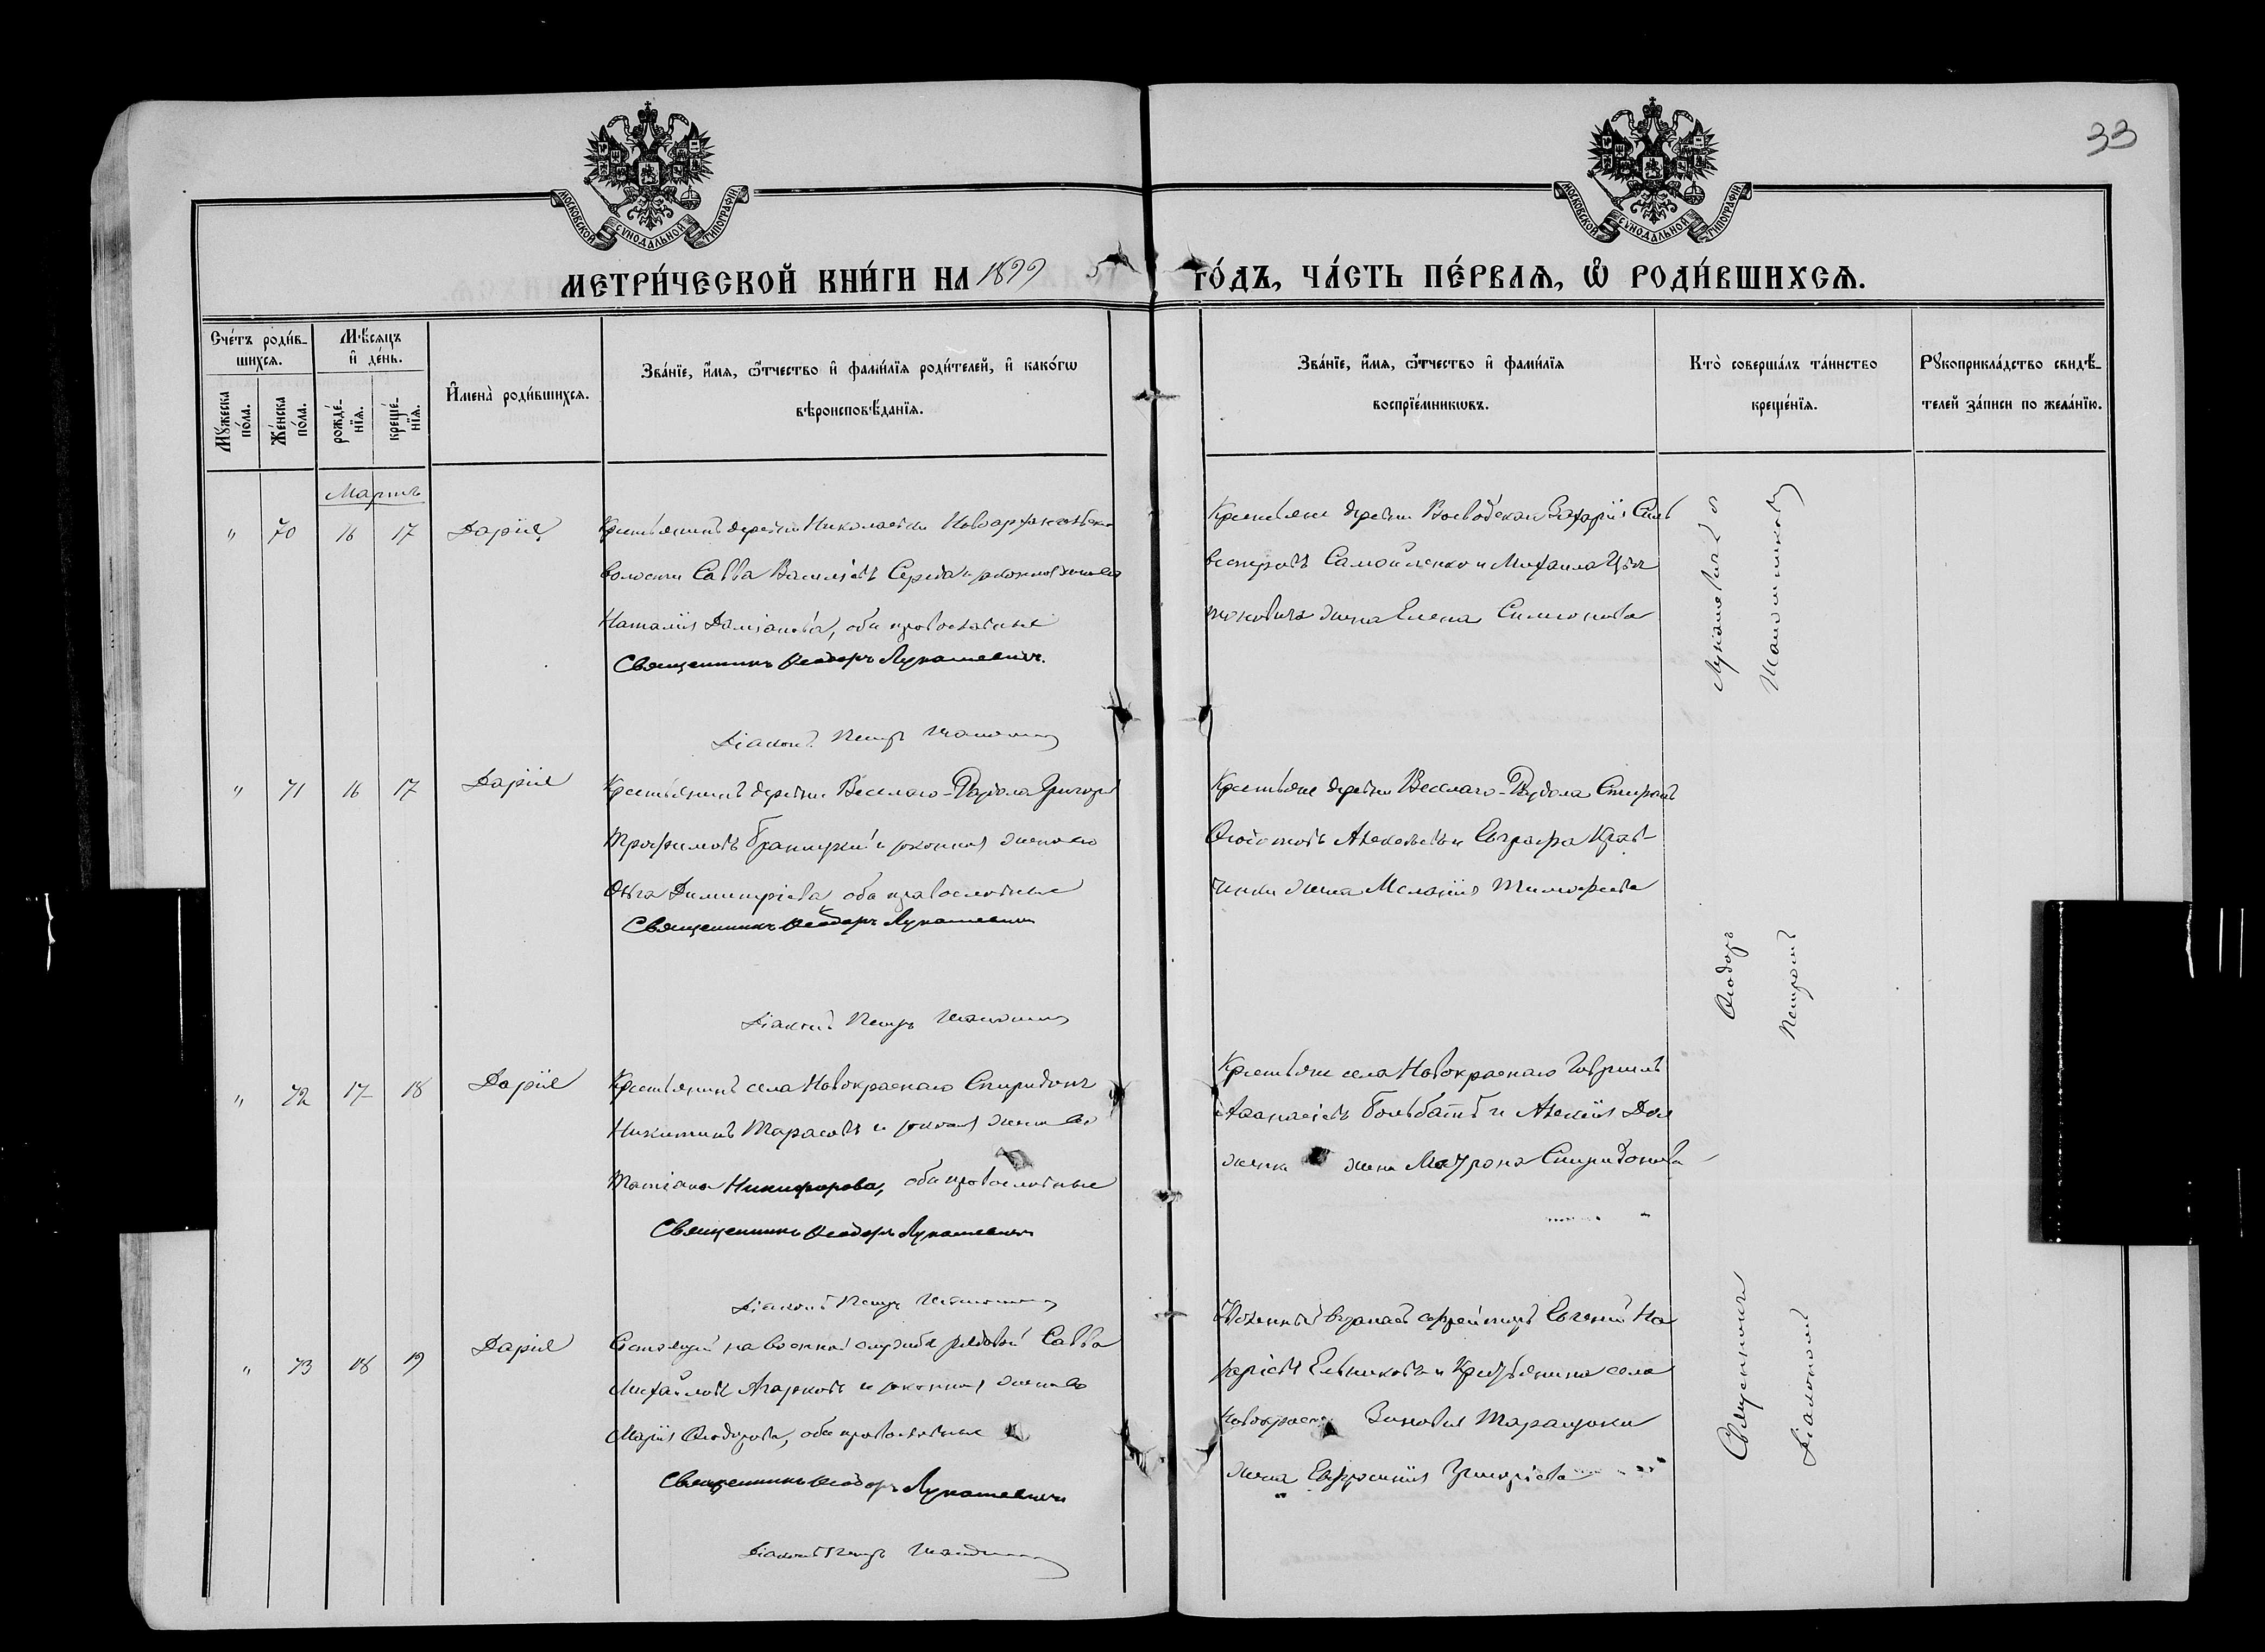 33
МОСКОВСКОЙ СѴНОДАЛЬНОЙ ТИПОГРАФІИ
МОСКОВСКОЙ СѴНОДАЛЬНОЙ ТИПОГРАФІИ
МЕТРИ́ЧЕСКОЙ КНИ́ГИ НА 1899 ГО́ДЪ, ЧА́СТЬ ПЕ́РВАѦ, Ѡ҆ РОДИ́ВШИХСѦ.
Сче́тъ роди́в-
шихсѧ.
Мꙋ́жеска по́ла.
Же́нска по́ла.
Мѣ́сѧцъ и҆ де́нь.
рожде́-нїѧ.
креще́-нїѧ.
И҆мена̀ роди́вшихсѧ.
Зва́нїе, и҆́мѧ, ѻ҆́тчество и҆ фами́лїѧ роди́телей, и҆ како́гѡ
вѣроисповѣ́данїѧ.
Зва́нїе, и҆́мѧ, ѻ҆́тчество и҆ фами́лїѧ
воспрїе́мникѡвъ.
Кто̀ соверша́лъ та́инство
креще́нїѧ.
Рꙋкоприкла́дство свидѣ́-
телей за́писи по жела́нїю.
Мартъ
" 70 16 17 Дарія
Крестьянинъ деревни Николаевки Новоархангельской
волости Савва Васильевъ Середа и законная жена его
Наталія Даміанова, оба православные
Священникъ Ѳеодоръ Лукашевичъ.
Діаконъ Петръ
Крестьяне деревни Воеводской Захарій Силь
вестровъ Самойленко и Михаила
жена Елена Симонова
" 71 16 17 Дарія
Крестьянинъ деревни Веселаго-Раздола Григорій
Трофимовъ Браницкій и законная жена его
Ольга Димитріева оба православные
Священникъ Ѳеодоръ Лукашевичъ
Діаконъ Петръ
Крестьяне деревни Веселаго-Раздола Спиронъ
Евграфа Крав-
чинки жена Меланія Тимофеева
" 72 17 18 Дарія
Крестьянинъ села Новокраснаго Спиридонъ
Никитинъ Тарасовъ и законная жена его
Татіана Никифорова, оба православные
Священникъ Ѳеодоръ Лукашевичъ
Діаконъ Петръ
Крестьяне села Новокраснаго Гавріилъ
Аѳанасіевъ и Алексія Дол
женка жена Мавра Спиридонова
" 73 18 19 Дарія
Состоящій на военной службѣ рядовой Савва
Михайловъ Агарковъ и законная жена его
Марія Ѳеодорова, оба православные
Священникъ Ѳеодоръ Лукашевичъ
Діаконъ Петръ
въ запасъ ефрейторъ Евгеній На
заріевъ Ельниковъ и Крестьянина села
Новокраснаго Зиновія Таращука
жена Евфросинія Григоріева
Священникъ Ѳеодоръ Лукашевичъ съ
Діакономъ Петромъ